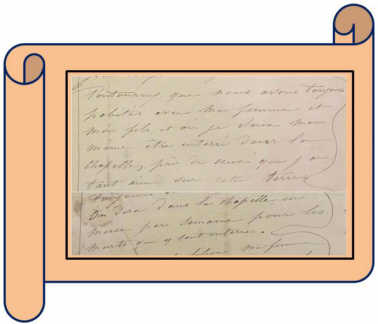 que nous avons toujours
habitée avec ma femme et
mon fils et où je veux moi
même être enterré dans la
chapelle, près de ceux que j'ai
tant aimé sur cette terre
On dira dans la chapelle une
messe par semaine pour les
morts qui y sont enterrés.
ma femme